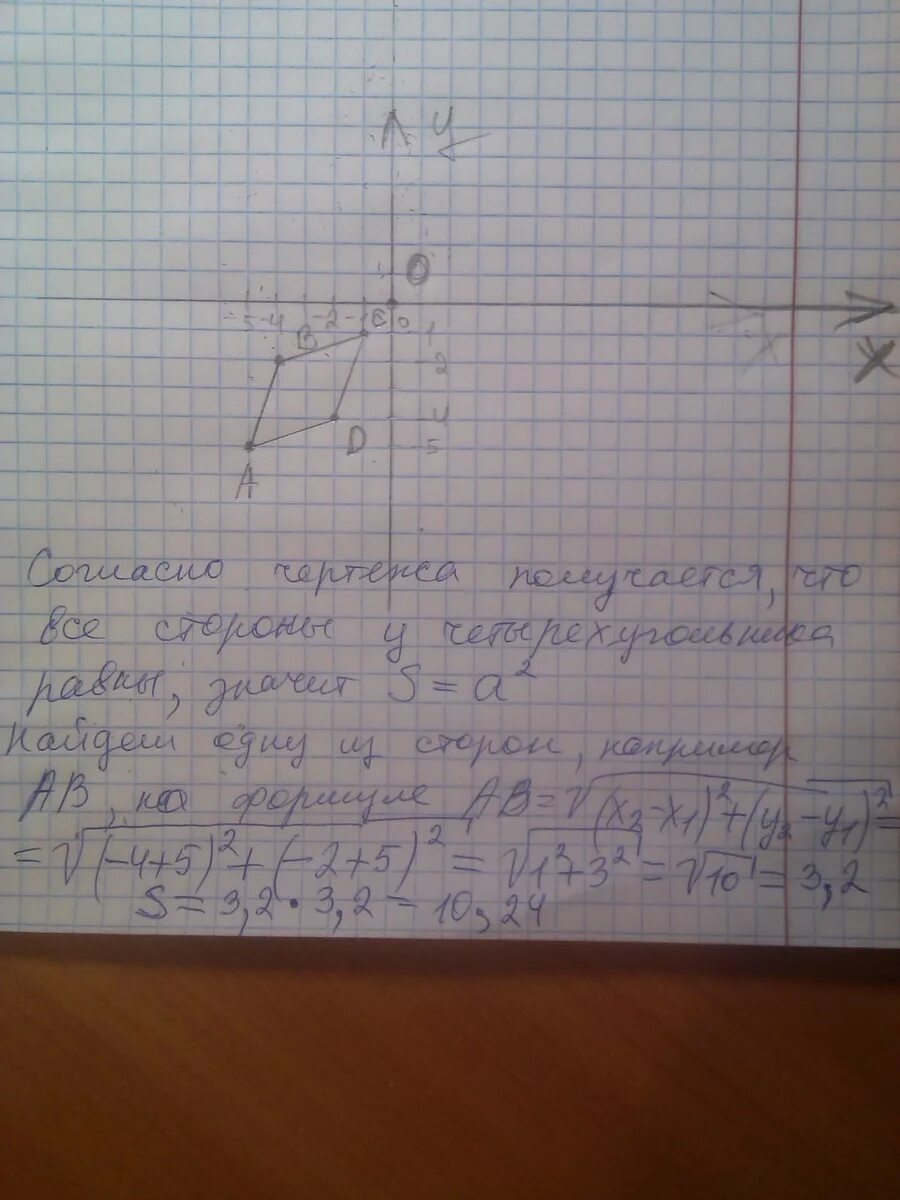 y
O
-5 -4 -2 -1 C 0
B
-1
-2
x
x
-4
D
-5
A
Согласно чертежа получается, что
все стороны у четырехугольника
равны, значит S = a²
Найдем одну из сторон, например
AB, по формуле AB = √(x₂-x₁)²+(y₂-y₁)² =
= √(-4+5)²+(-2+5)² = √1²+3² = √10 = 3,2
S = 3,2 · 3,2 = 10,24